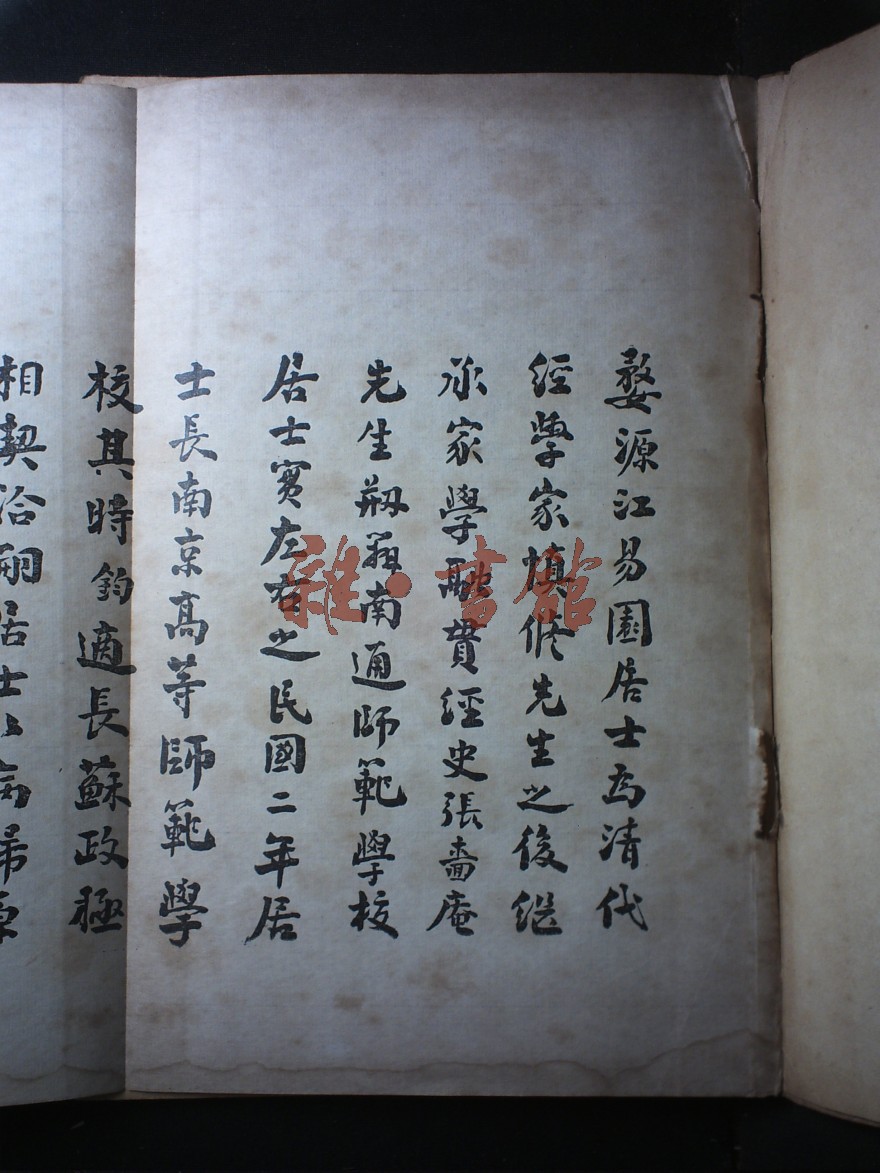 婺源江易園居士為清代
經學家慎修先生之後繼
承家學融貫經史張嗇庵
先生剏辦南通師範學校
居士實左右之民國二年居
士長南京高等師範學
校其時鈞適長蘇政極
相契洽嗣居士以病歸
雜·書館